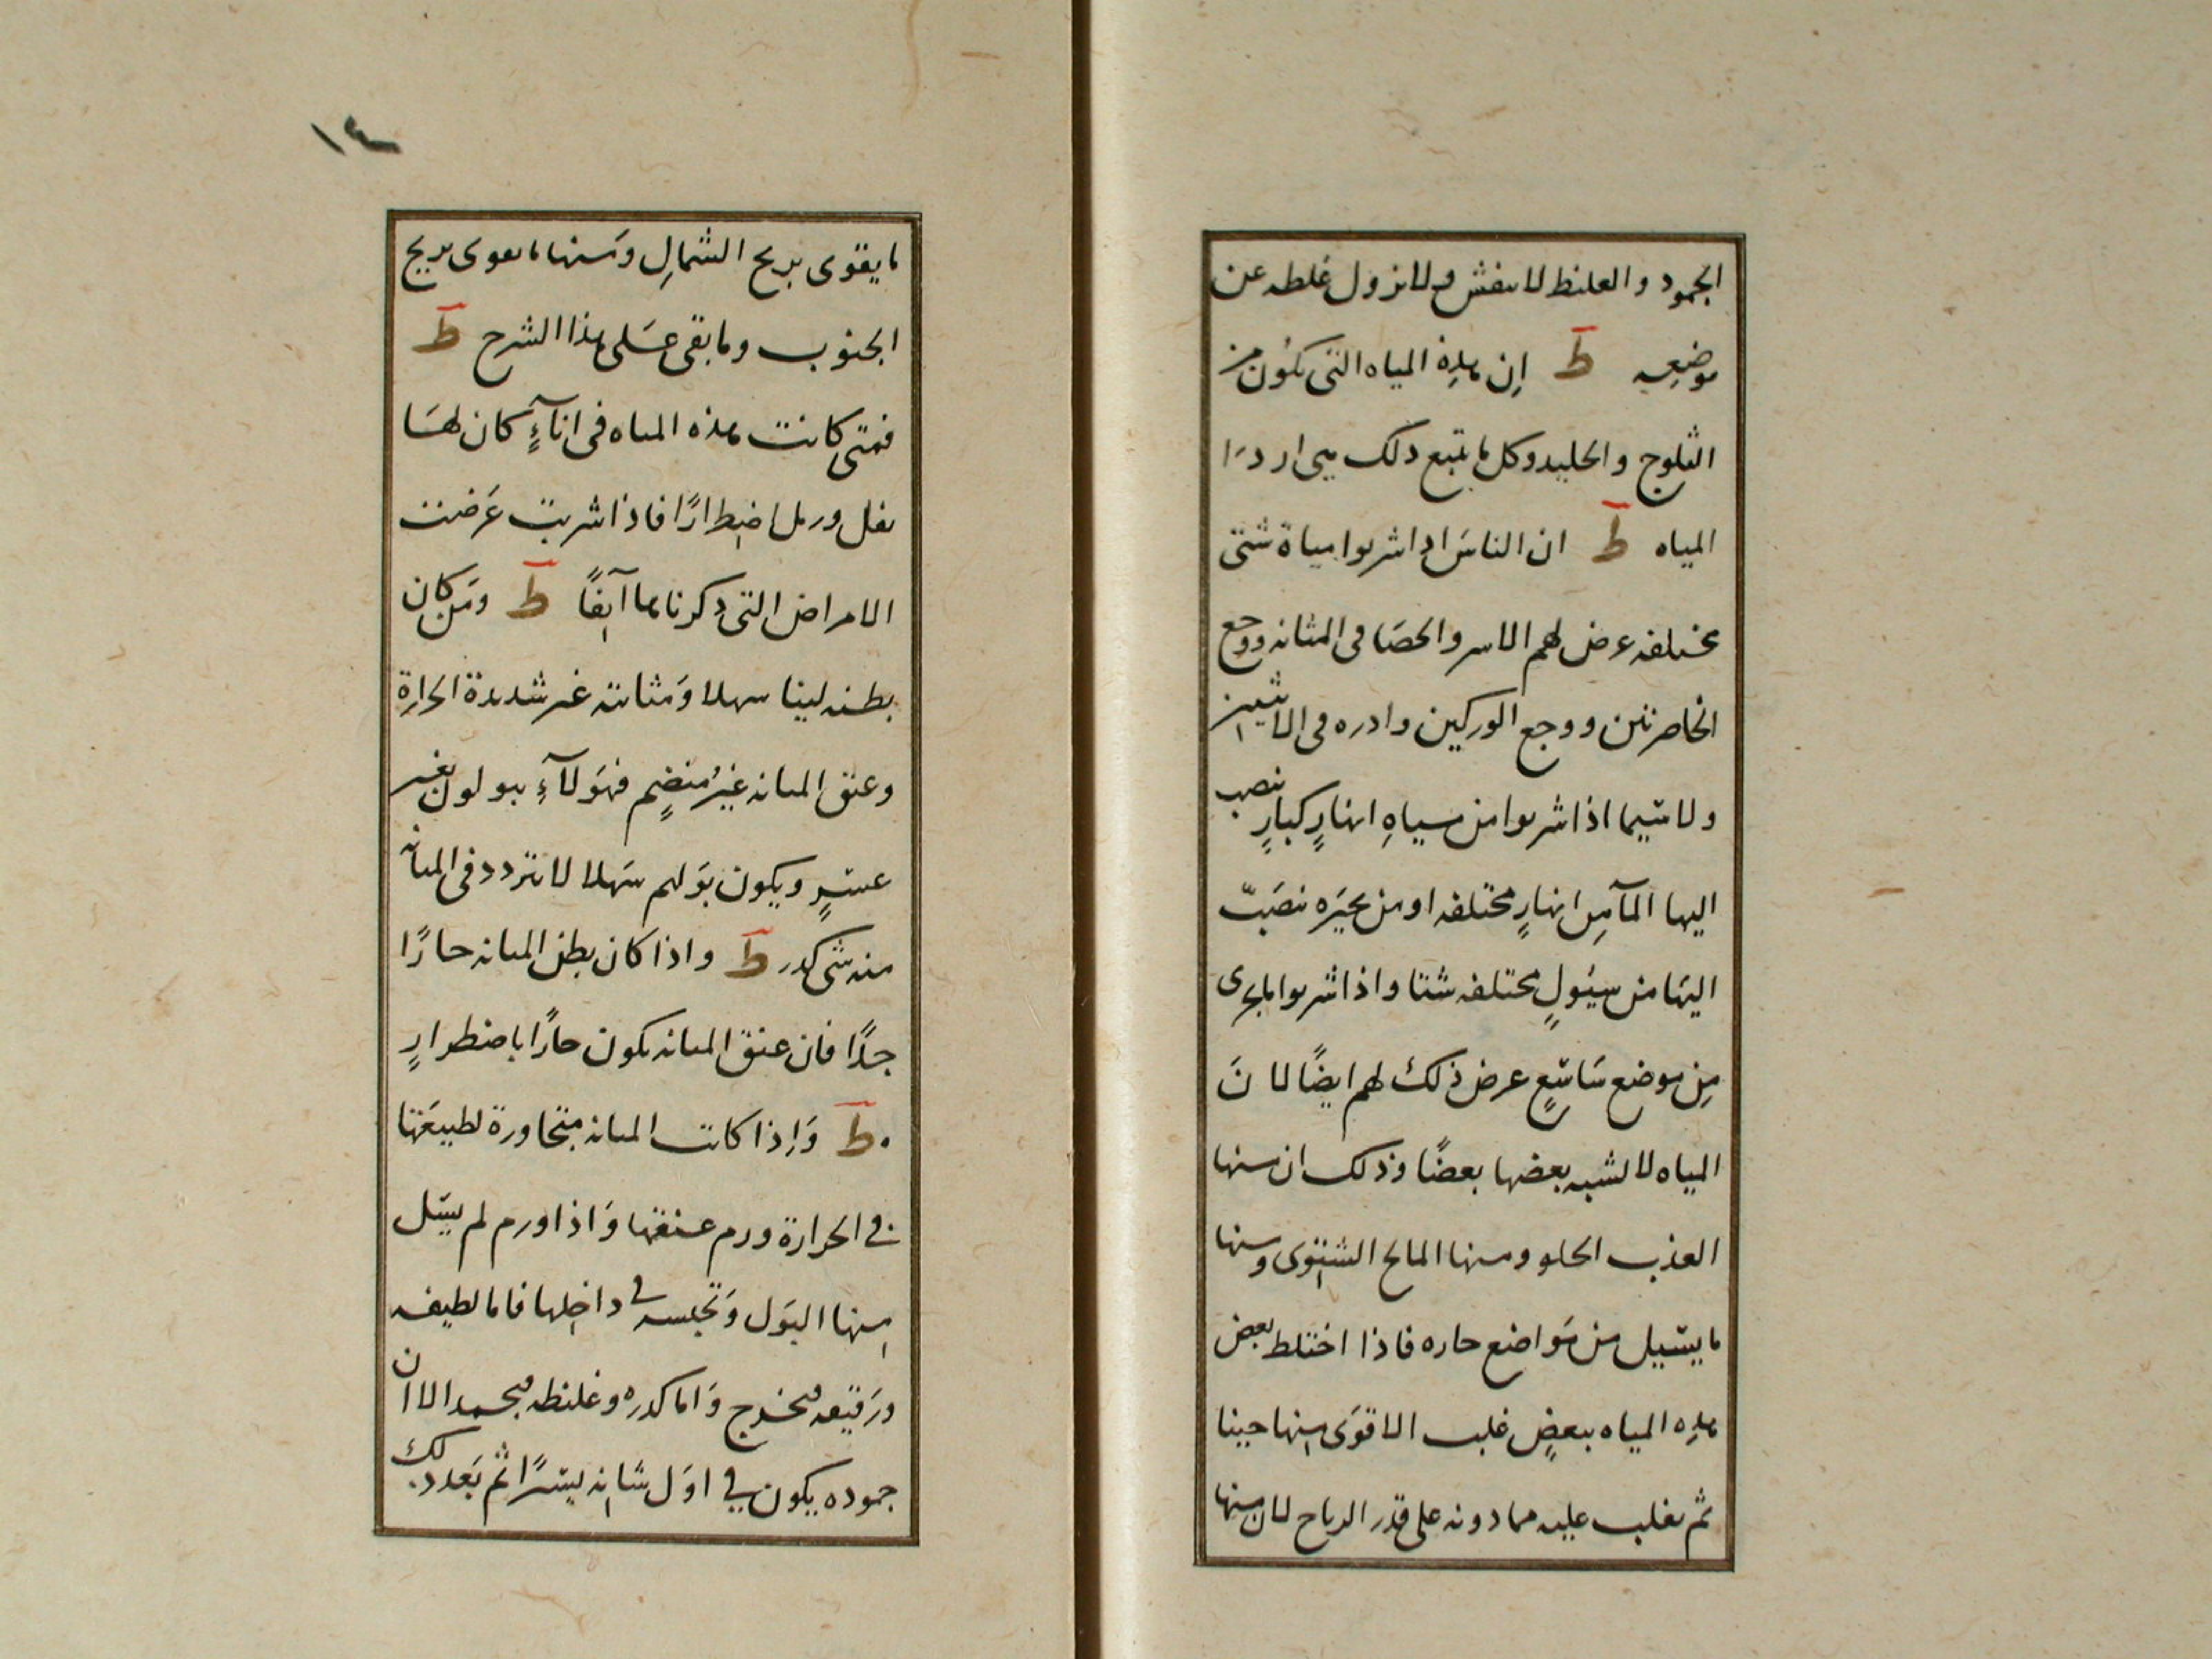 الجمود والغليظ لا ينفش ولا نزول غلطه عن
موضعه ط إن هذه المياه التى تكون من
الثلوج والجليد وكل ما يتبع ذلك هى اردَا
المياه ط ان الناسَ اذا شربوا مياة شتى
مختلفه عرض لهم الاسر والحصَا فى المثانه ووجع
الخاصرتين ووجع الوركين وادره فى الانثيين
ولا سيما اذا شربوا من مياهِ انهارٍ كبارٍ تنصب
اليها المآ مِن انهارٍ مختلفه او من بحيَره تنصَبّ
اليهَا من سيُولٍ مختلفه شتا واذا شربوا ما يجرى
مِن موضع شاسَعٍ عرض ذلك لهم ايضًا لانَ
المياه لا تشبه بعضها بعضًا وذلك ان منها
العذب الحلو ومنها المالح الشبّوى ومنها
ما يسيل من مَواضع حاره فاذا اختلط بعض
هذِه المياه ببعضٍ غلب الاقوَى منها حينا
ثم يغلب عليه مما دونه على قدر الرياح لان منها
١٤
ما يقوى بريح الشمالِ ومَنها ما يقوى بريح
الجنوب وما بقى عَلى هذا الشرح ط
فمتى كانت هذه المياه فى انآءٍ كان لهَا
ثفل ورمل اضطرارًا فاذا شربت عَرضت
الامراض التى ذكرناها آنِفًا ط ومَن كان
بطنه لينا سهلا وَمثانته غير شديدة الحرارِة
وعنق المثانه غيرُ منضمٍ فهَولآءِ يبولون بغير
عسَرٍ ويكون بَولهم سَهلا لا يتردد فى المثانه
منه شى كدر ط واذا كان بطن المثانه حارًا
جدًا فان عنق المثانه يكون حارًا باضطرارٍ
ط وَاِذا كانت المثانه متجاورة لطبيعَتها
فى الحَرارة ورم عنقها وَاذا ورم لم يسَل
منها البَول وَتحبسه فى داخِلها فاما لطيفه
ورَقيقه فيخرج وَاما كدره وغليظه فيجمد الا ان
جموده يكون في اوَل شانه يسَيرًا ثم بَعد ذلك